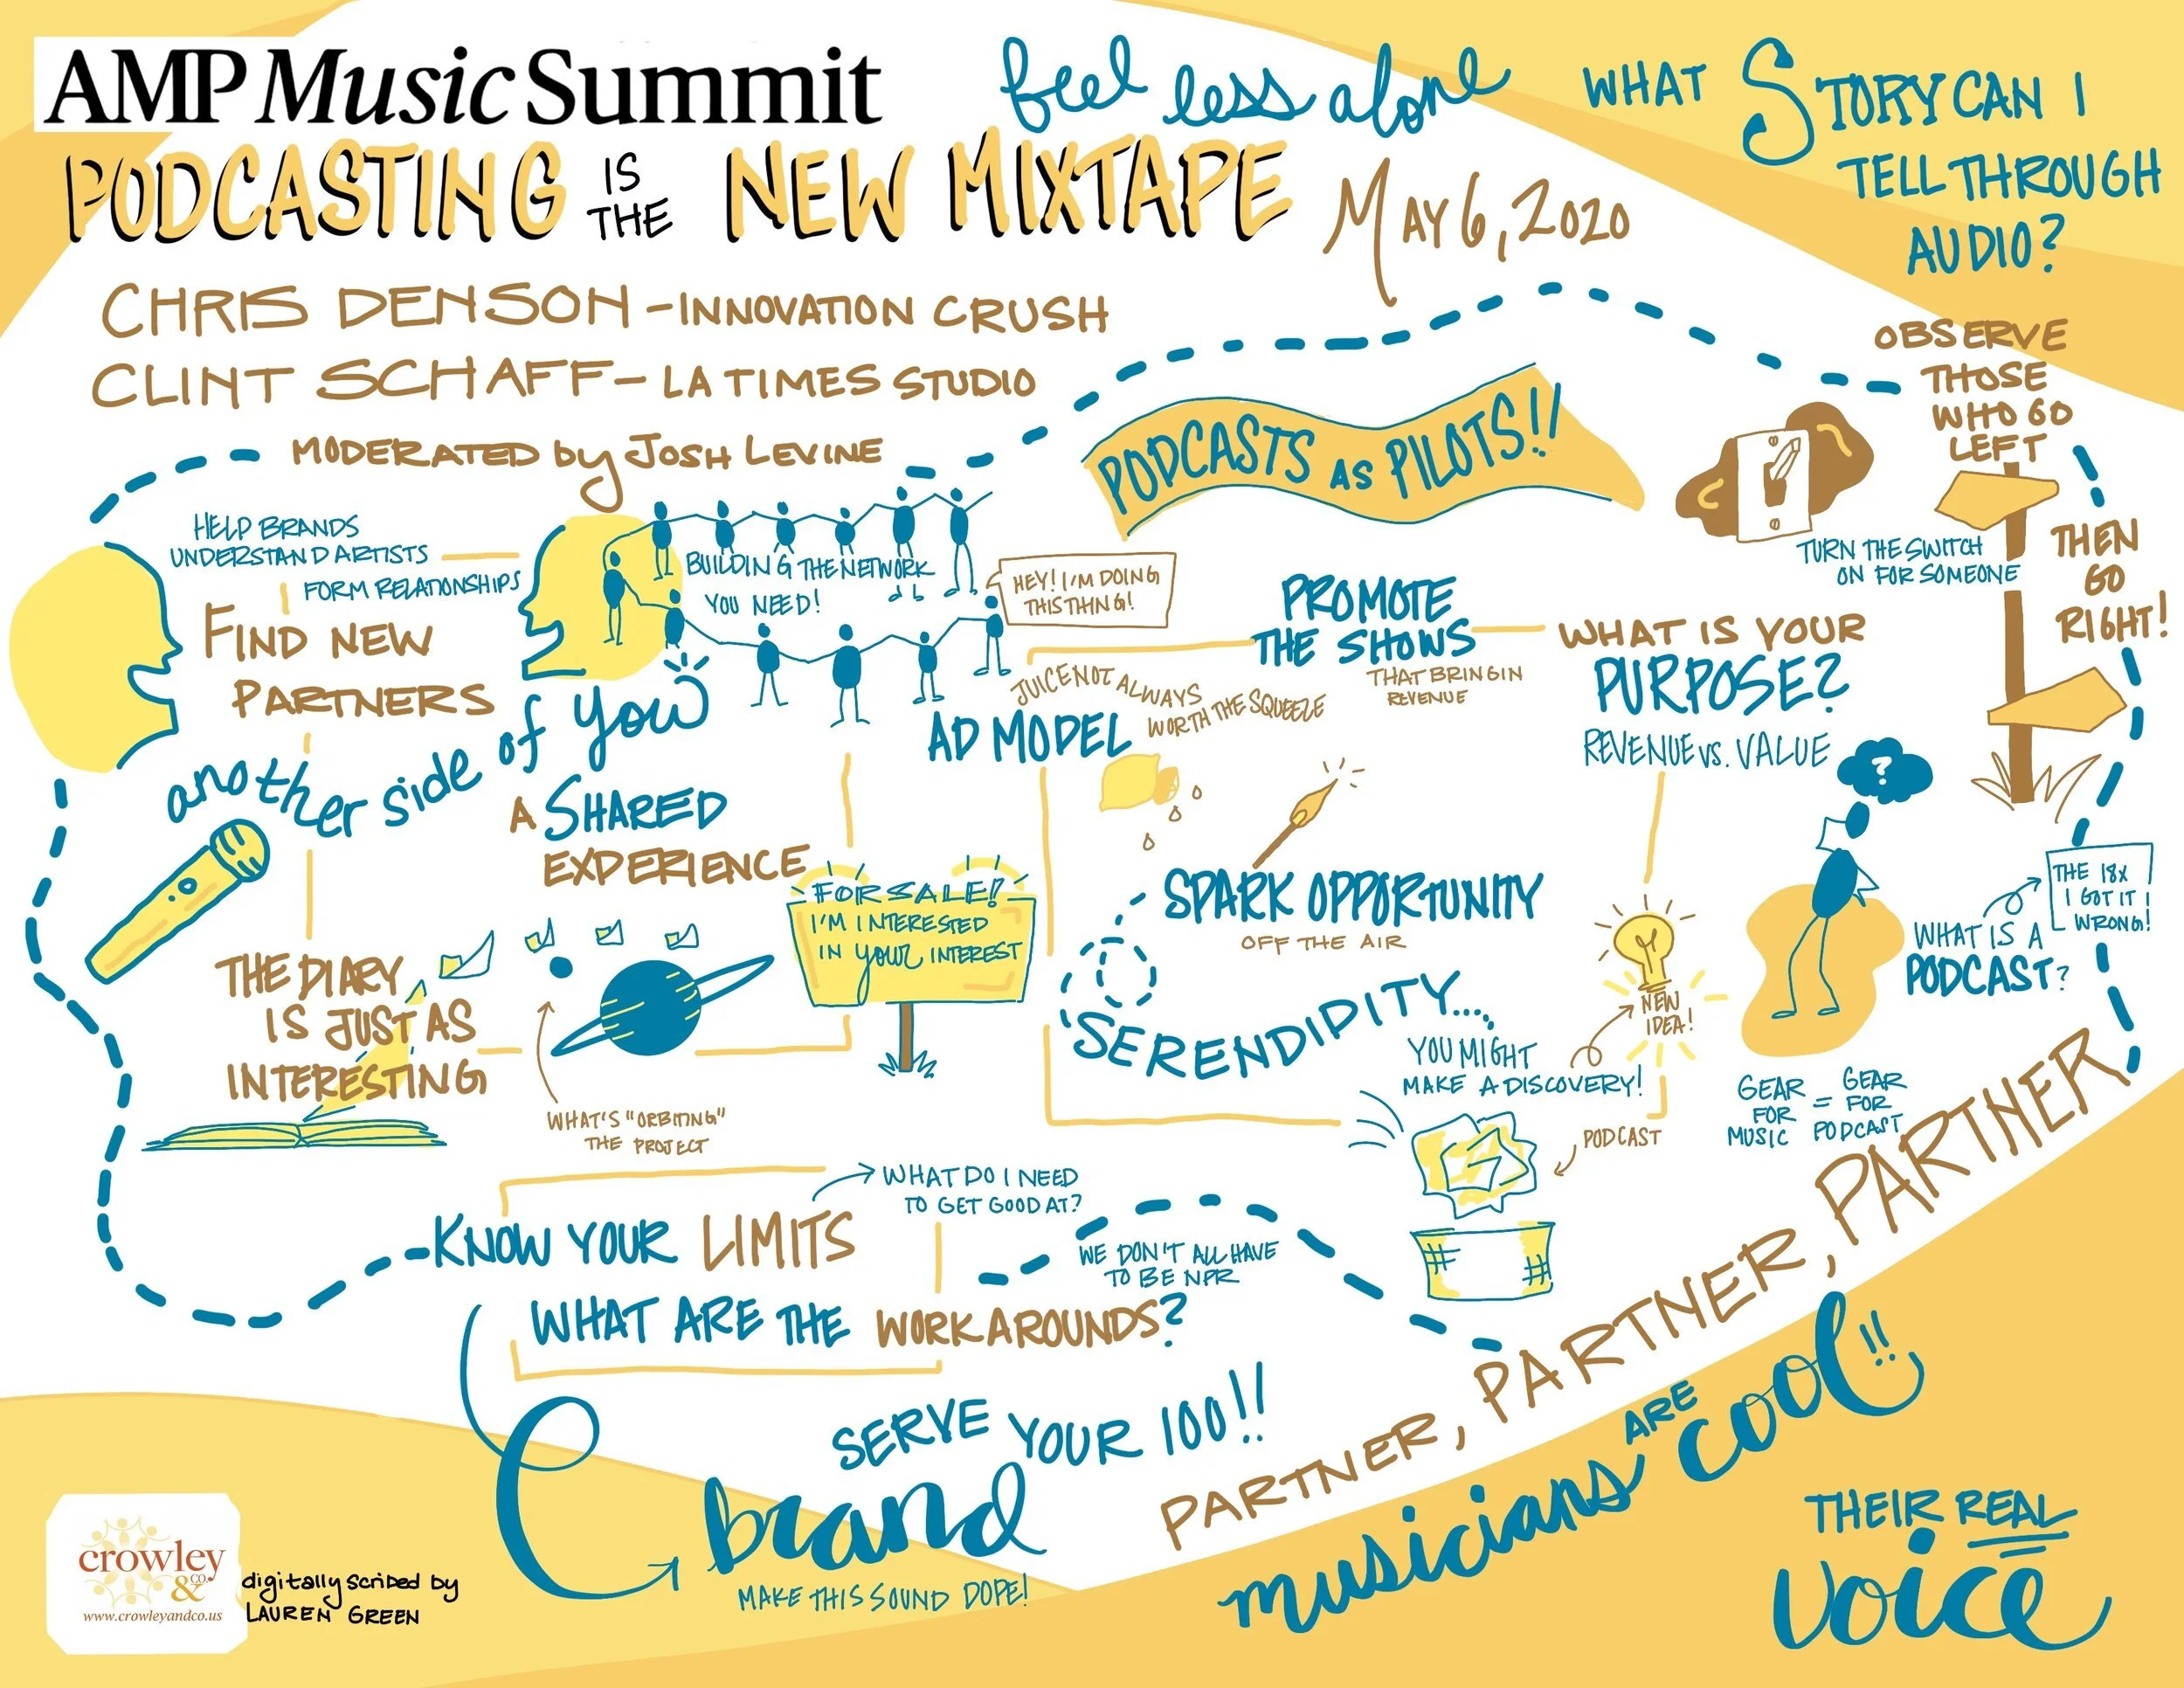 AMP Music Summit
feel less alone
WHAT STORY CAN I
TELL THROUGH
AUDIO?
PODCASTING IS THE NEW MIXTAPE
MAY 6, 2020
CHRIS DENSON - INNOVATION CRUSH
CLINT SCHAFF - LA TIMES STUDIO
MODERATED by JOSH LEVINE
PODCASTS AS PILOTS!!
OBSERVE
THOSE
WHO GO
LEFT
THEN
GO
RIGHT!
TURN THE SWITCH
ON FOR SOMEONE
HELP BRANDS
UNDERSTAND ARTISTS
FORM RELATIONSHIPS
FIND NEW
PARTNERS
BUILDING THE NETWORK
YOU NEED!
HEY! I'M DOING
THIS THING!
PROMOTE
THE SHOWS
THAT BRING IN
REVENUE
WHAT IS YOUR
PURPOSE?
REVENUE VS. VALUE
?
another side of you
JUICE NOT ALWAYS
WORTH THE SQUEEZE
AD MODEL
A SHARED
EXPERIENCE
FOR SALE!
I'M INTERESTED
IN YOUR INTEREST
SPARK OPPORTUNITY
OFF THE AIR
THE 18X
I GOT IT
WRONG!
WHAT IS A
PODCAST?
THE DIARY
IS JUST AS
INTERESTING
WHAT'S "ORBITING"
THE PROJECT
SERENDIPITY...
YOU MIGHT
MAKE A DISCOVERY!
NEW
IDEA!
PODCAST
GEAR FOR MUSIC = GEAR FOR PODCAST
KNOW YOUR LIMITS
WHAT DO I NEED
TO GET GOOD AT?
WE DON'T ALL HAVE
TO BE NPR
WHAT ARE THE WORKAROUNDS?
SERVE YOUR 100!!
brand
MAKE THIS SOUND DOPE!
PARTNER, PARTNER, PARTNER, PARTNER
musicians ARE cool!!
THEIR REAL
Voice
crowley
& CO.
www.crowleyandco.us
digitally scribed by
LAUREN GREEN